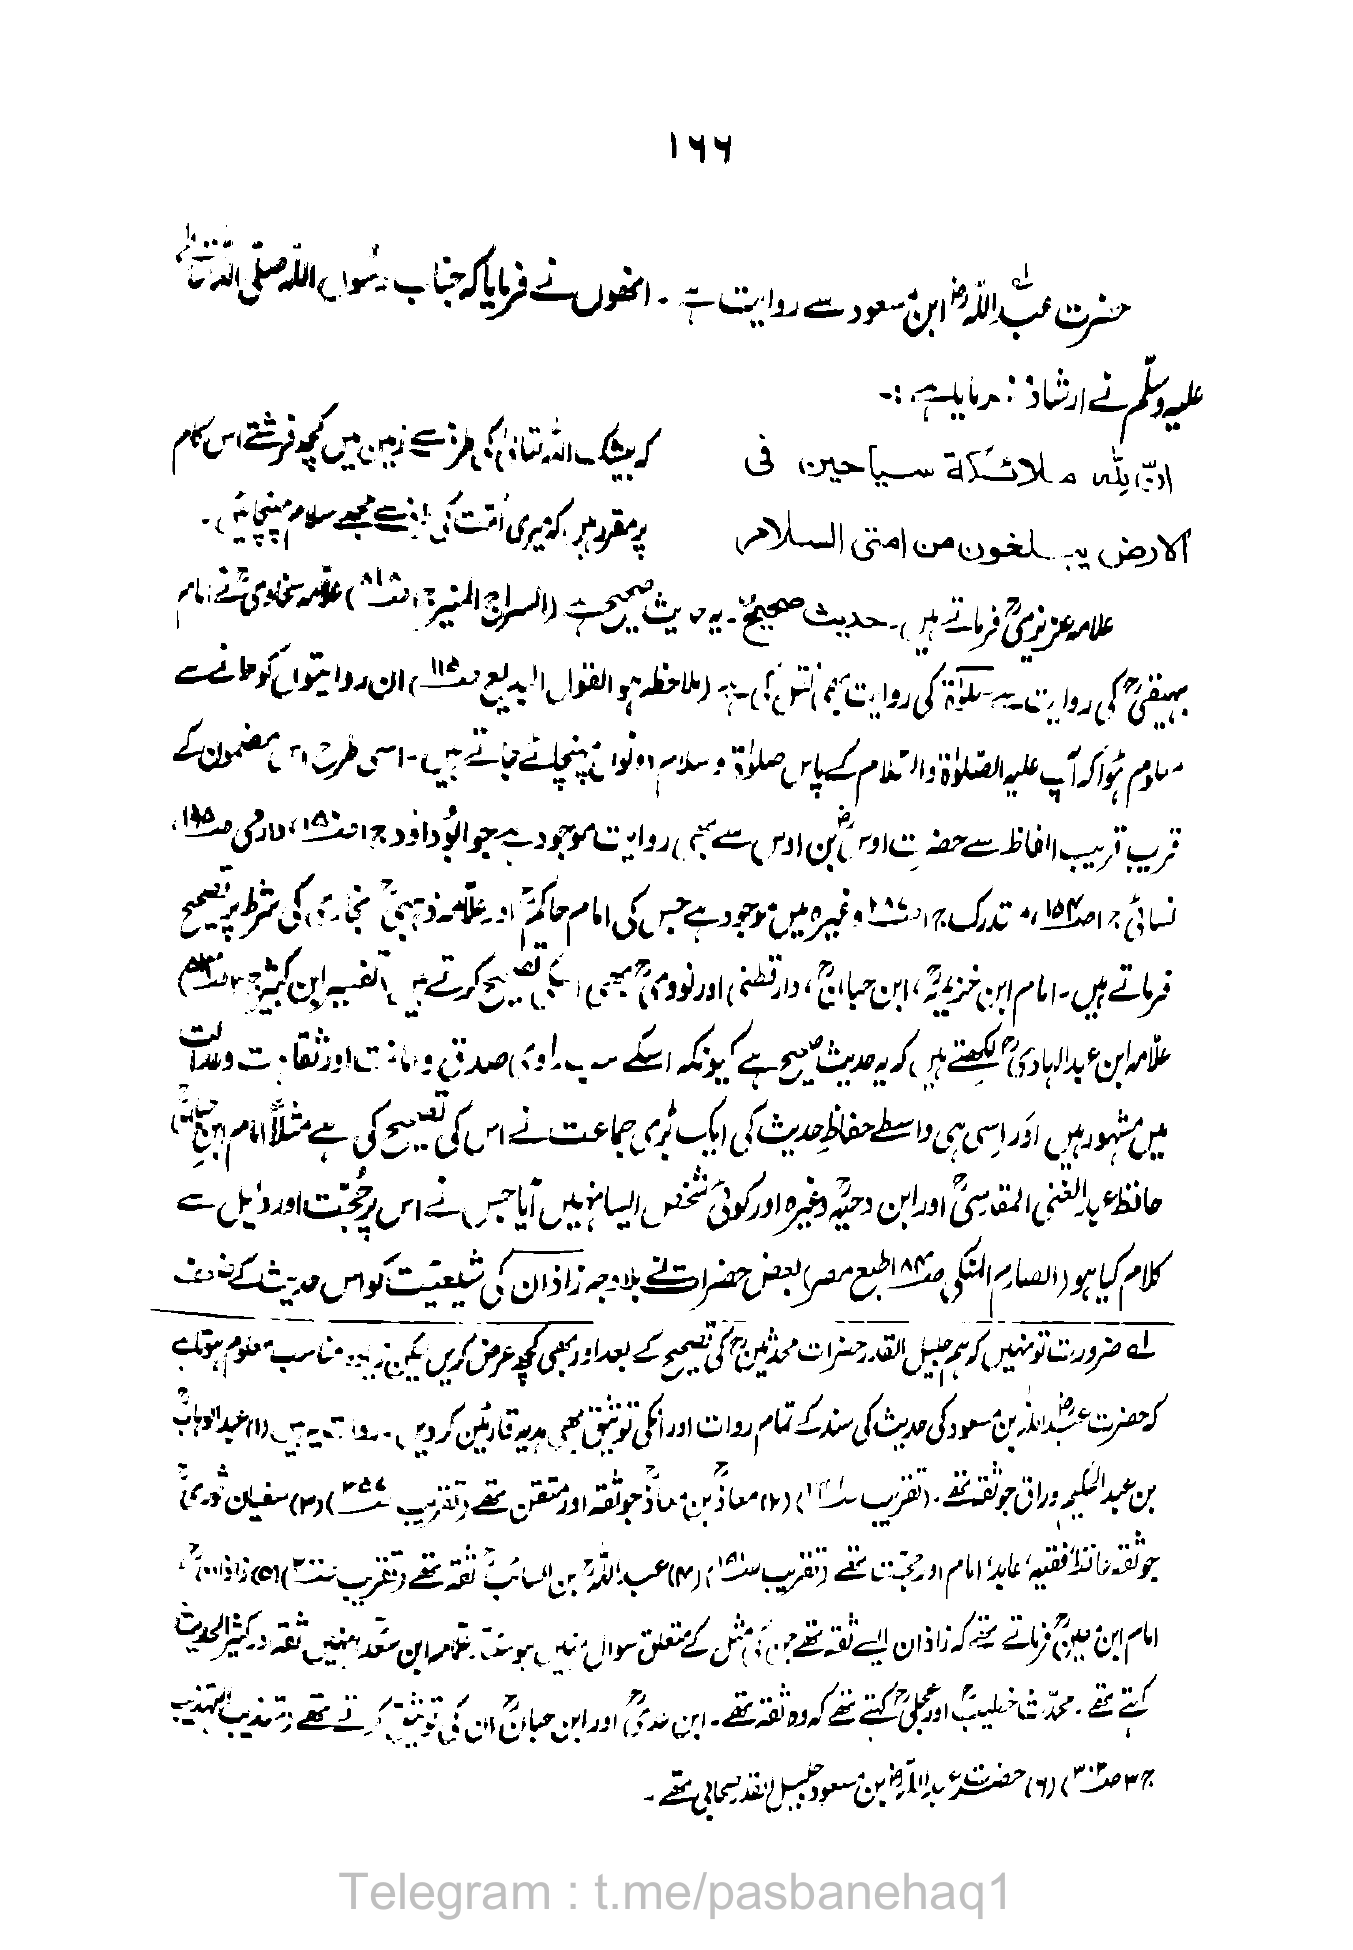 ۱۶۶
حضرت عبداللہؓ ابن مسعود سے روایت ہے ۔ انھوں نے فرمایا کہ جناب رسول اللہ صلی اللہ تعالیٰ
علیہ وسلم نے ارشاد فرمایا ہے :۔
ان لله ملائكة سياحين فى
الارض يبلغون من امتى السلام
کہ بیشک اللہ تعالیٰ کی طرف سے زمین میں کچھ فرشتے اس کام
پر مقرر ہیں کہ میری اُمت کی طرف سے مجھے سلام پہنچائیں ۔
علامہ عزیزیؒ فرماتے ہیں ۔ حدیث صحیح ۔ یہ حدیث صحیح ہے (السراج المنیر ج۱ ص۵۱۸) علامہ سخاویؒ نے امام
بیہقیؒ کی روایت سے صلوٰۃ کی روایت بھی نقل کی ہے (ملاحظہ ہو القول البدیع ص۱۱۵) ان روایتوں کو ملانے سے
معلوم ہوا کہ آپ علیہ الصلوٰۃ والسلام کے پاس صلوٰۃ و سلام دونوں پہنچائے جاتے ہیں ۔ اسی طرح اس مضمون کے
قریب قریب الفاظ سے حضرت اوسؓ بن اوس سے بھی روایت موجود ہے جو ابوداؤد ج۱ ص۱۵۰، دارمی ص۱۹۵،
نسائی ج۱ ص۱۵۴، مستدرک ج۱ وغیرہ میں موجود ہے جس کی امام حاکمؒ اور علامہ ذہبیؒ بخاری کی شرط پر تصحیح
فرماتے ہیں ۔ امام ابن خزیمہؒ، ابن حبانؒ، دارقطنی اور نوویؒ بھی اسکی تصحیح کرتے ہیں (تفسیر ابن کثیر ج۳
علامہ ابن عبدالہادیؒ لکھتے ہیں کہ یہ حدیث صحیح ہے کیونکہ اسکے سب راوی صدق و امانت اور ثقاہت و عدالت
میں مشہور ہیں اور اسی ہی واسطے حفاظ حدیث کی ایک بڑی جماعت نے اس کی تصحیح کی ہے مثلاً امام ابن حبانؒ
حافظ عبدالغنی المقدسیؒ اور ابن دحیہؒ وغیرہ اور کوئی شخص ایسا نہیں آیا جس نے اس پر حجت اور دلیل سے
کلام کیا ہو (الصارم المنکی ص۱۸۴ طبع مصر) بعض حضرات نے بلاوجہ زاذان کی شیعیت کو اس حدیث کے ضعف
لے ضرورت تو نہیں کہ ہم جلیل القدر حضرات محدثینؒ کی تصحیح کے بعد اور بھی کچھ عرض کریں لیکن زیادہ مناسب معلوم ہوتا ہے
کہ حضرت عبداللہؓ بن مسعود کی حدیث کی سند کے تمام روات اور انکی توثیق بھی ہدیہ قارئین کر دیں ۔ روات یہ ہیں (۱) عبدالوہابؒ
بن عبدالحکیم وراق جو ثقہ تھے ۔ (تقریب (۲) معاذؒ بن معاذؒ جو ثقہ اور متقن تھے (تقریب ص۳۵۷) (۳) سفیان ثوریؒ
جو ثقہ حافظ، فقیہ، عابد، امام اور حجت تھے (تقریب ص۱۵۱) (۴) عبداللہؒ بن السائبؒ ثقہ تھے (تقریب (۵) زاذانؒ،
امام ابن معینؒ فرماتے تھے کہ زاذان ایسے ثقہ تھے جن کی مثل کے متعلق سوال نہیں ہو سکتا ۔ علامہ ابن سعد انہیں ثقہ اور کثیر الحدیث
کہتے تھے ۔ محدث خطیبؒ اور عجلیؒ کہتے تھے کہ وہ ثقہ تھے ۔ ابن عدیؒ اور ابن حبانؒ ان کی توثیق کرتے تھے (تہذیب التہذیب
ج۳ ص۳۰۲) (۶) حضرت عبداللہؓ بن مسعود جلیل القدر صحابی تھے ۔
Telegram : t.me/pasbanehaq1